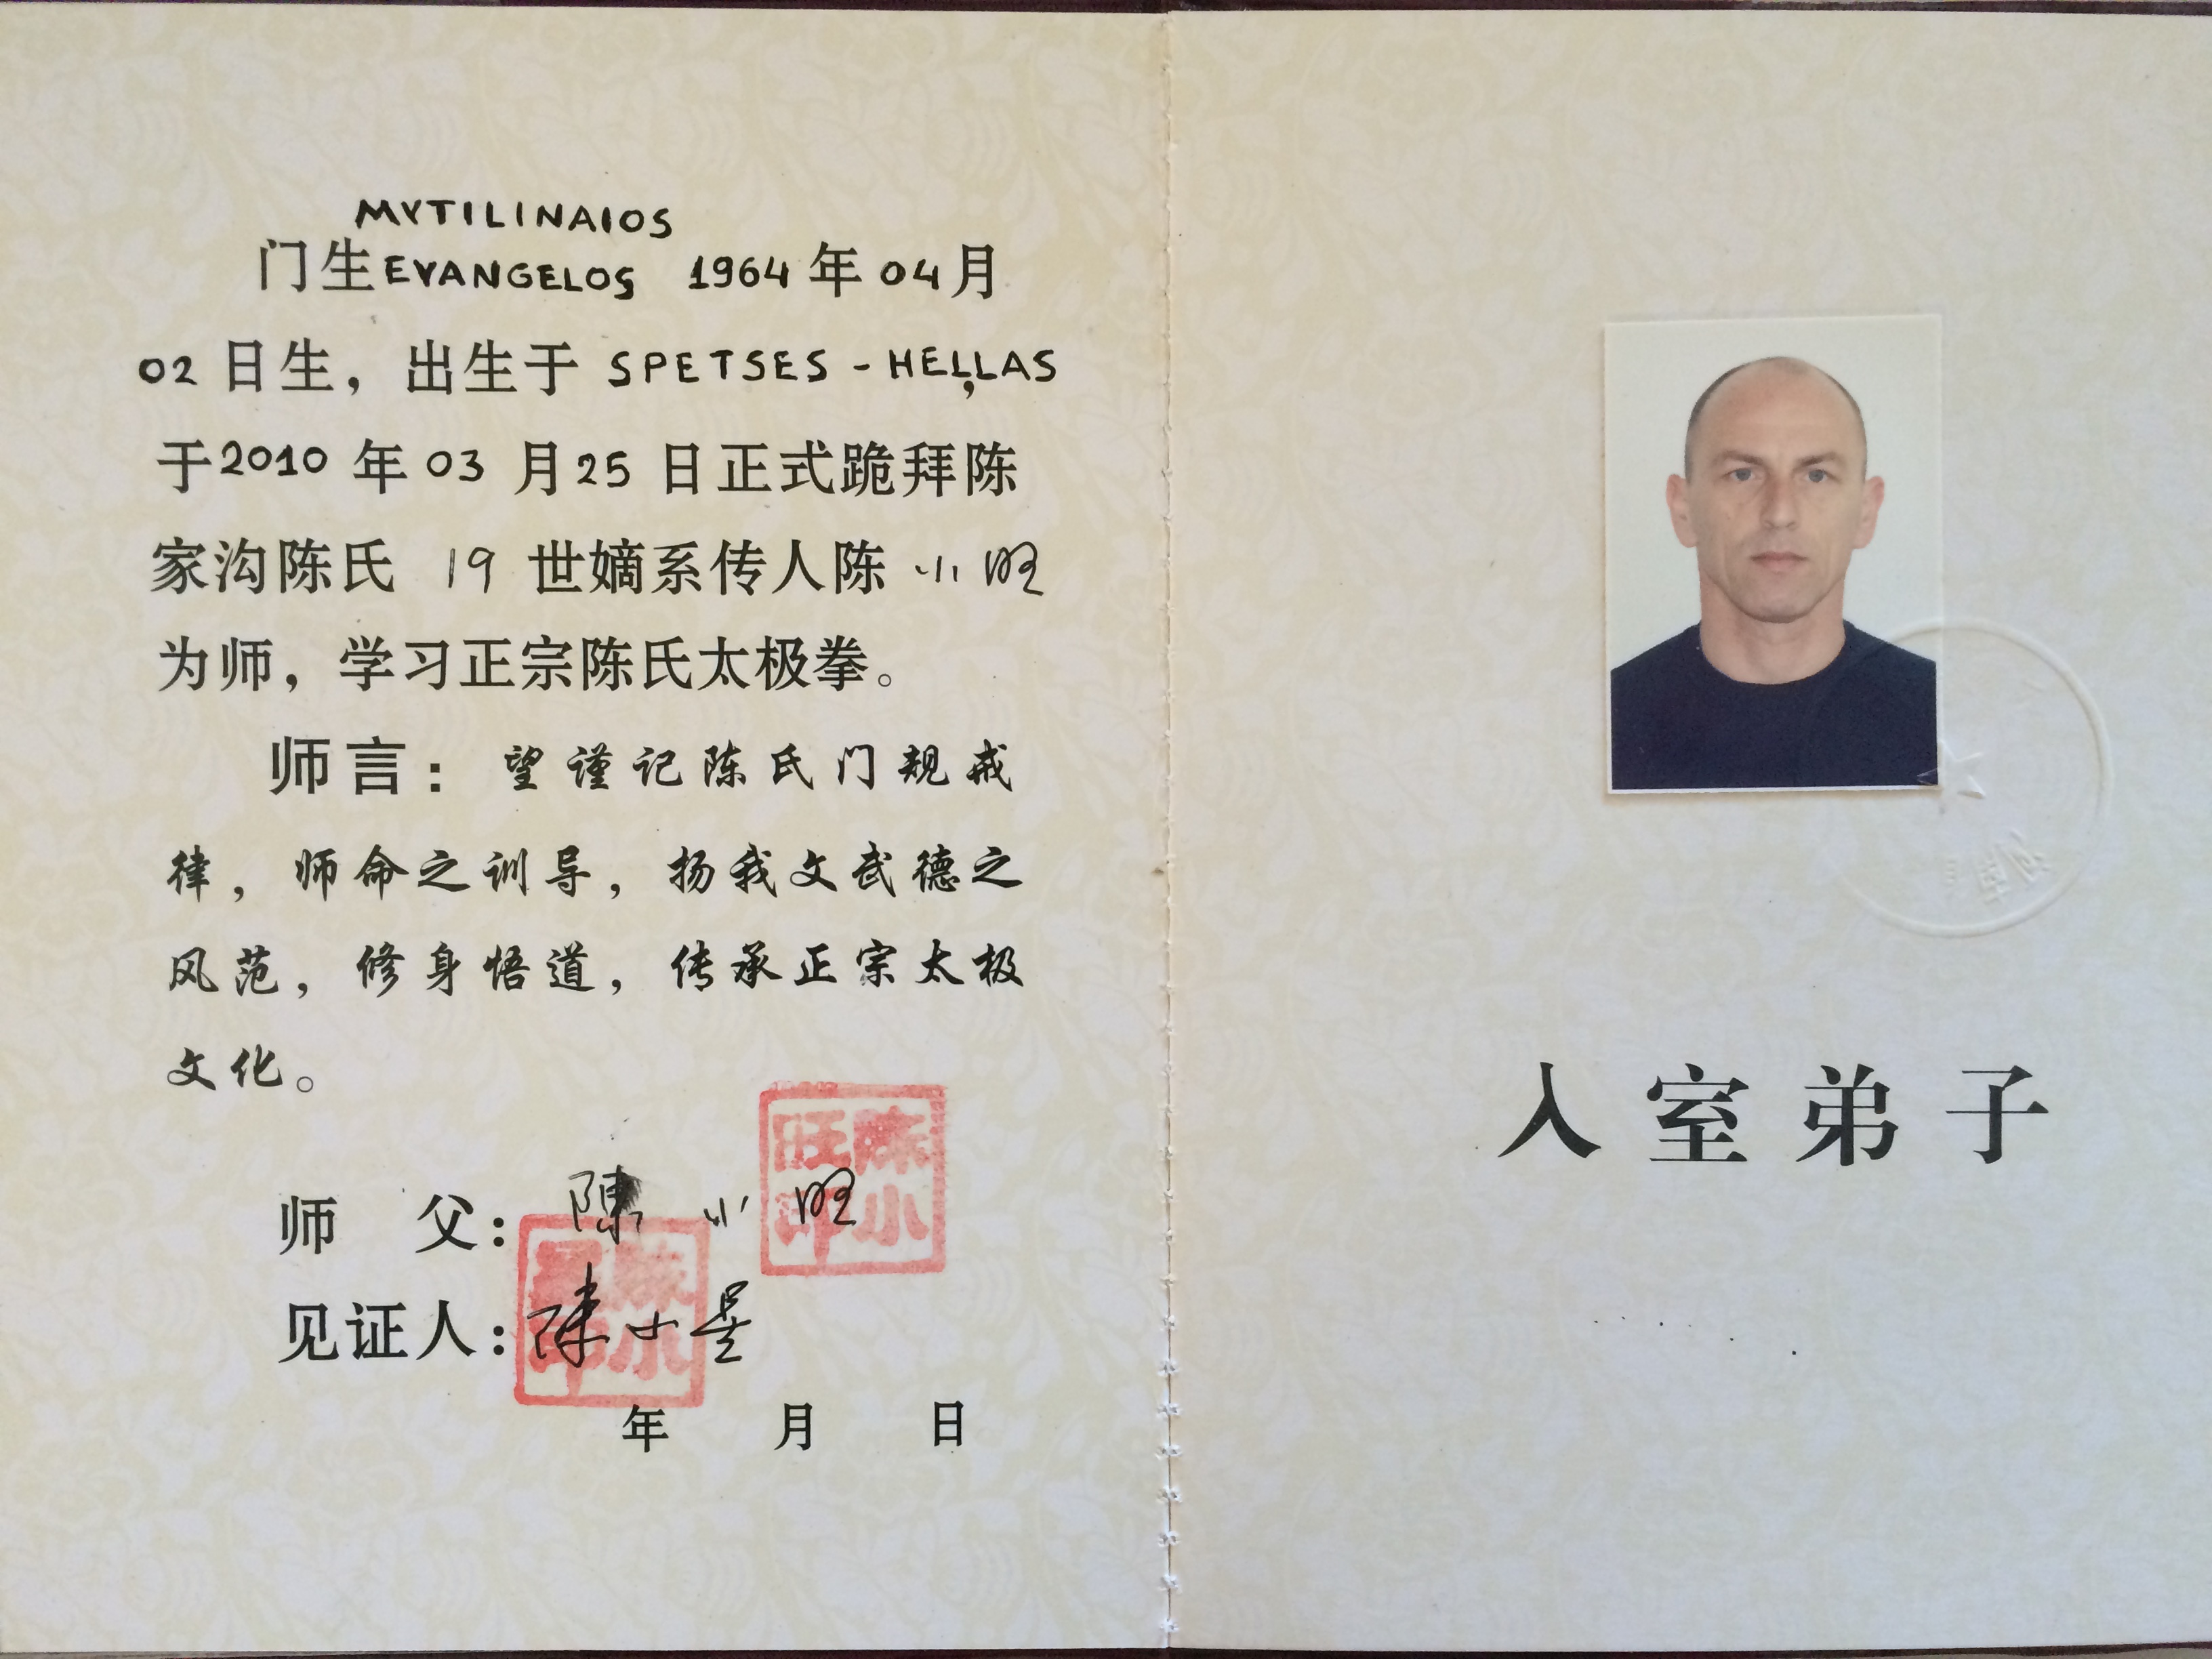 MYTILINAIOS
门生EVANGELOS 1964年04月
02日生，出生于 SPETSES - HELLAS，
于2010年03月25日正式跪拜陈
家沟陈氏 19 世嫡系传人陈小旺
为师，学习正宗陈氏太极拳。
师言：望谨记陈氏门规戒
律，师命之训导，扬我文武德之
风范，修身悟道，传承正宗太极
文化。
师 父：陳小旺
陈小旺印
见证人：陳小星
陈小星印
年 月 日
入室弟子